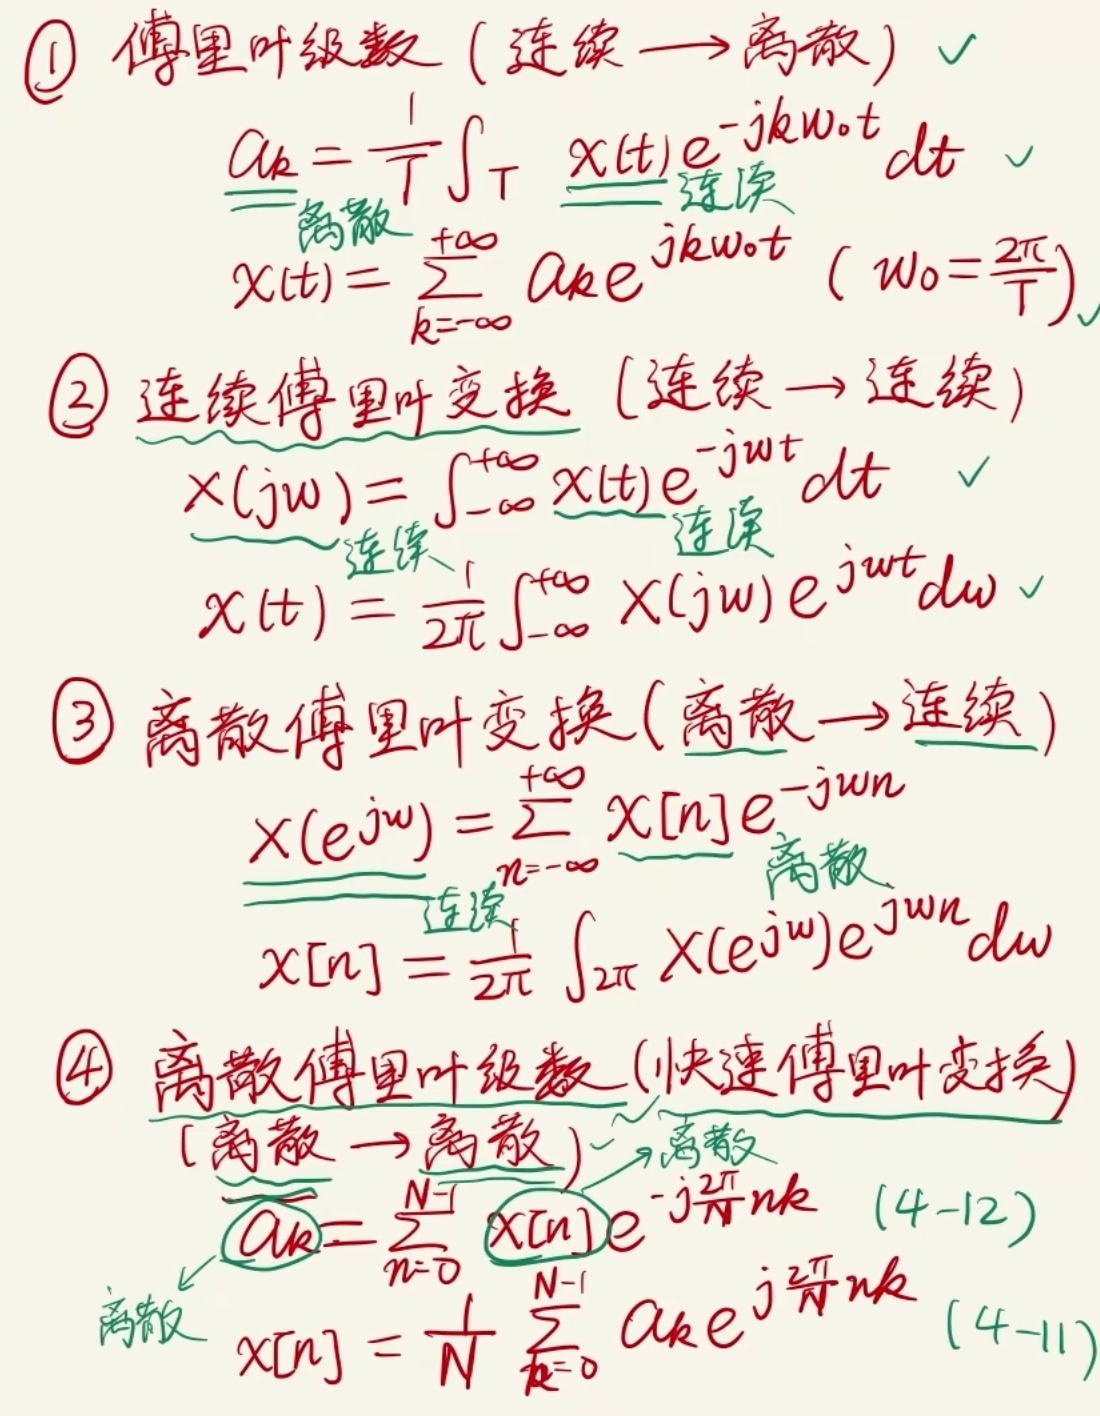 ① 傅里叶级数 (连续 → 离散) ✓
a_k = 1/T ∫_T x(t) e^{-jkw₀t} dt ✓
离散 连续
x(t) = Σ_{k=-∞}^{+∞} a_k e^{jkw₀t} (w₀ = 2π/T) ✓
② 连续傅里叶变换 (连续 → 连续)
X(jw) = ∫_{-∞}^{+∞} x(t) e^{-jwt} dt ✓
连续 连续
x(t) = 1/2π ∫_{-∞}^{+∞} X(jw) e^{jwt} dw ✓
③ 离散傅里叶变换 (离散 → 连续)
X(e^{jw}) = Σ_{n=-∞}^{+∞} x[n] e^{-jwn}
连续 离散
x[n] = 1/2π ∫_{2π} X(e^{jw}) e^{jwn} dw
④ 离散傅里叶级数 (快速傅里叶变换)
(离散 → 离散) ✓ ✓ 离散
a_k = Σ_{n=0}^{N-1} x[n] e^{-j2π/N nk} (4-12)
离散
x[n] = 1/N Σ_{k=0}^{N-1} a_k e^{j2π/N nk} (4-11)